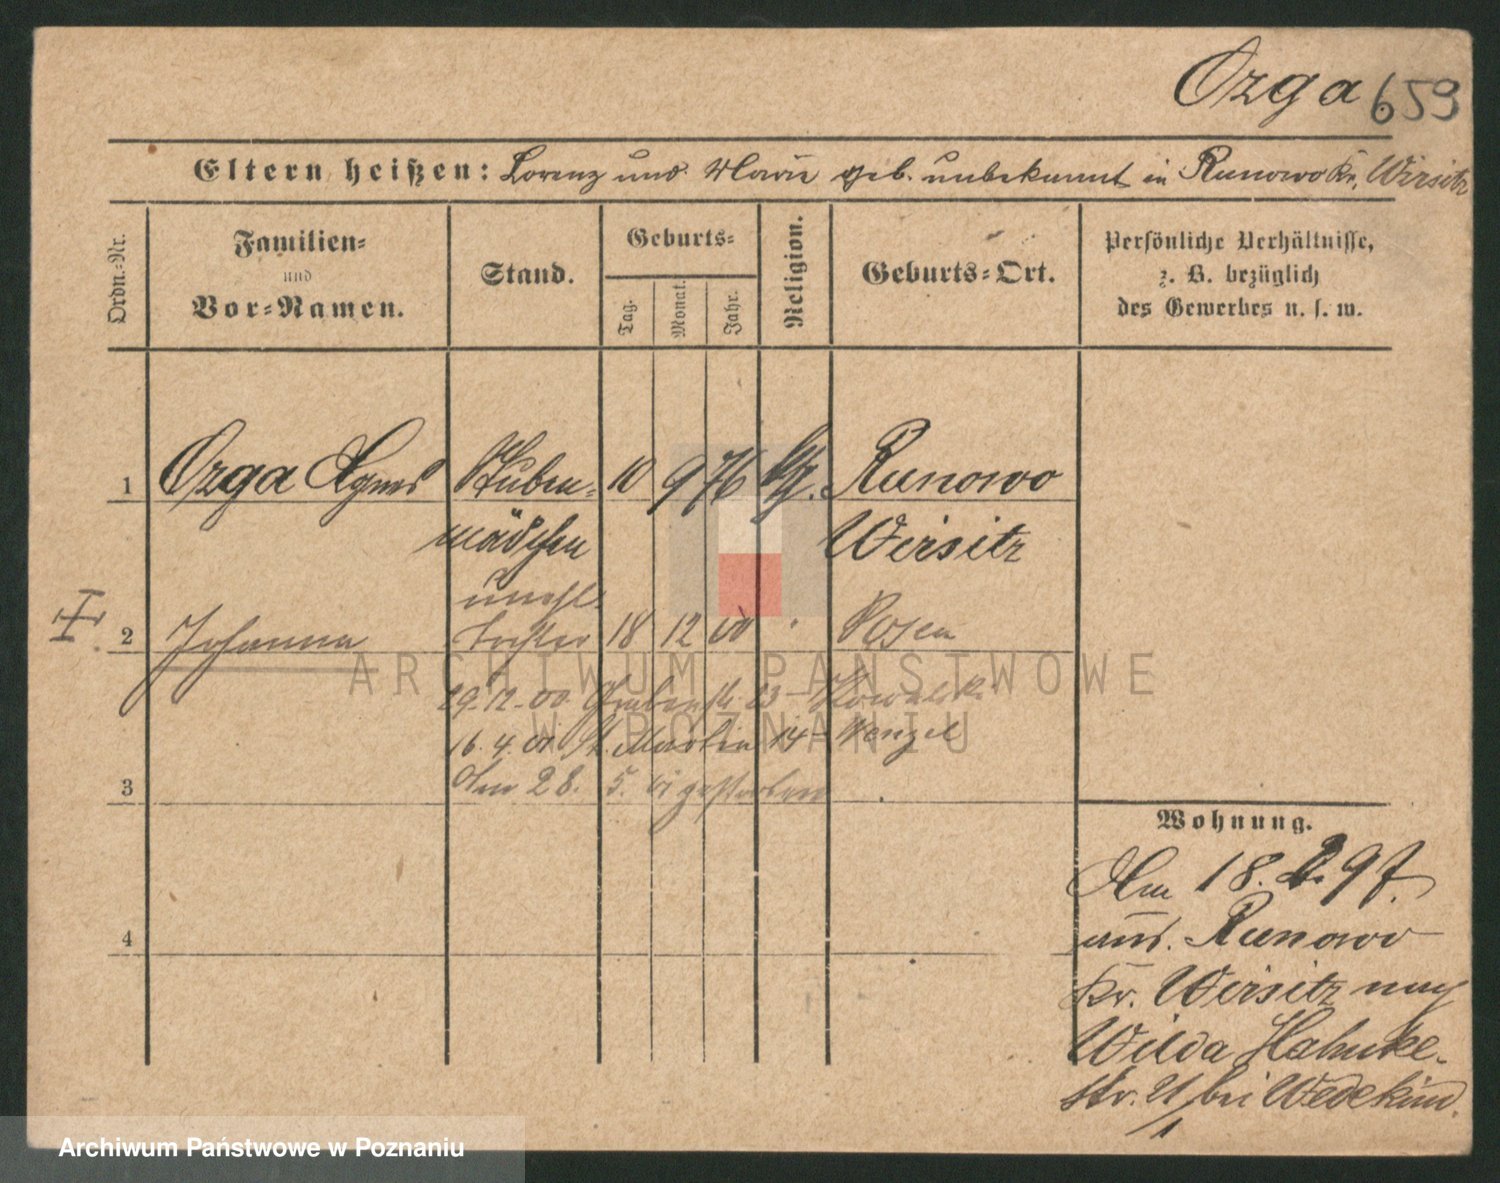 Ozga 659
Eltern heißen: Lorenz und Marie geb. unbekannt in Runowo Kr. Wirsitz
Ordn.-Nr.
Familien-
und
Vor-Namen.
Stand.
Geburts-
Tag.
Monat.
Jahr.
Religion.
Geburts-Ort.
Persönliche Verhältnisse,
z. B. bezüglich
des Gewerbes u. s. w.
1 Ozga Agnes Stuben- 10 9 76 Runowo
mädchen Wirsitz
unehl.
2 Johanna Tochter 18 12 00 Posen
29.12.00 13 - Kowalski
16.4.01 St. Martin 14 - Wenzel
3 Am 28. 5. 01 gestorben
4
Wohnung.
Am 18. 2. 97.
aus. Runowo
Kr. Wirsitz nach
Wilda Hahnke-
str. 21 bei Wedekind.
1
ARCHIWUM PAŃSTWOWE
W POZNANIU
Archiwum Państwowe w Poznaniu